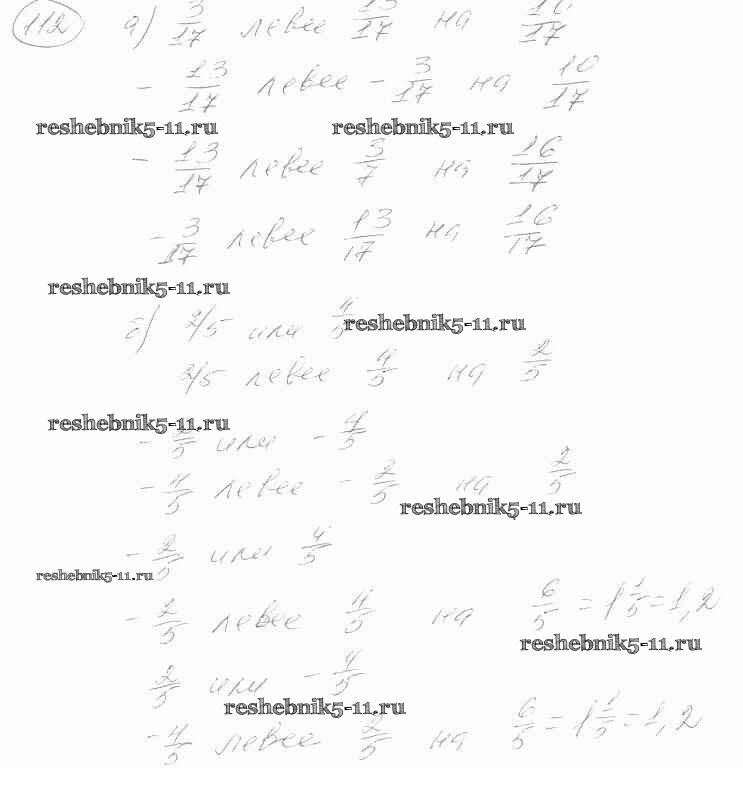 112 а) 3/17 левее 13/17 на 10/17
- 13/17 левее - 3/17 на 10/17
reshebnik5-11.ru reshebnik5-11.ru
- 13/17 левее 3/7 на 16/17
- 3/17 левее 13/17 на 16/17
reshebnik5-11.ru
б) 2/5 или 4/5 reshebnik5-11.ru
2/5 левее 4/5 на 2/5
reshebnik5-11.ru
- 2/5 или - 4/5
- 4/5 левее - 2/5 на 2/5
reshebnik5-11.ru
- 2/5 или 4/5
reshebnik5-11.ru
- 2/5 левее 4/5 на 6/5 = 1 1/5 = 1,2
reshebnik5-11.ru
2/5 или - 4/5
reshebnik5-11.ru
- 4/5 левее 2/5 на 6/5 = 1 1/5 = 1,2